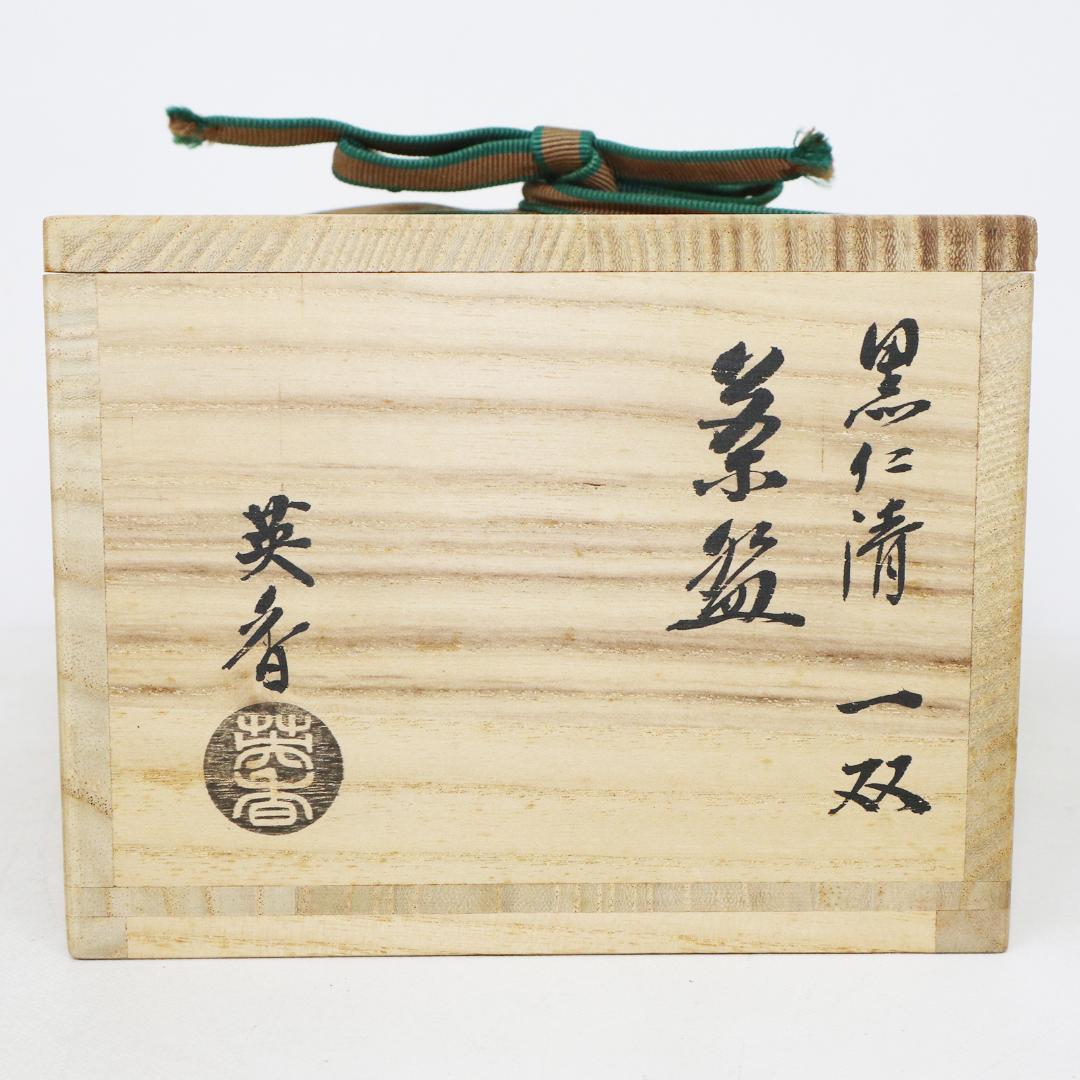 黒仁清 一双
茶盌
英香
英香